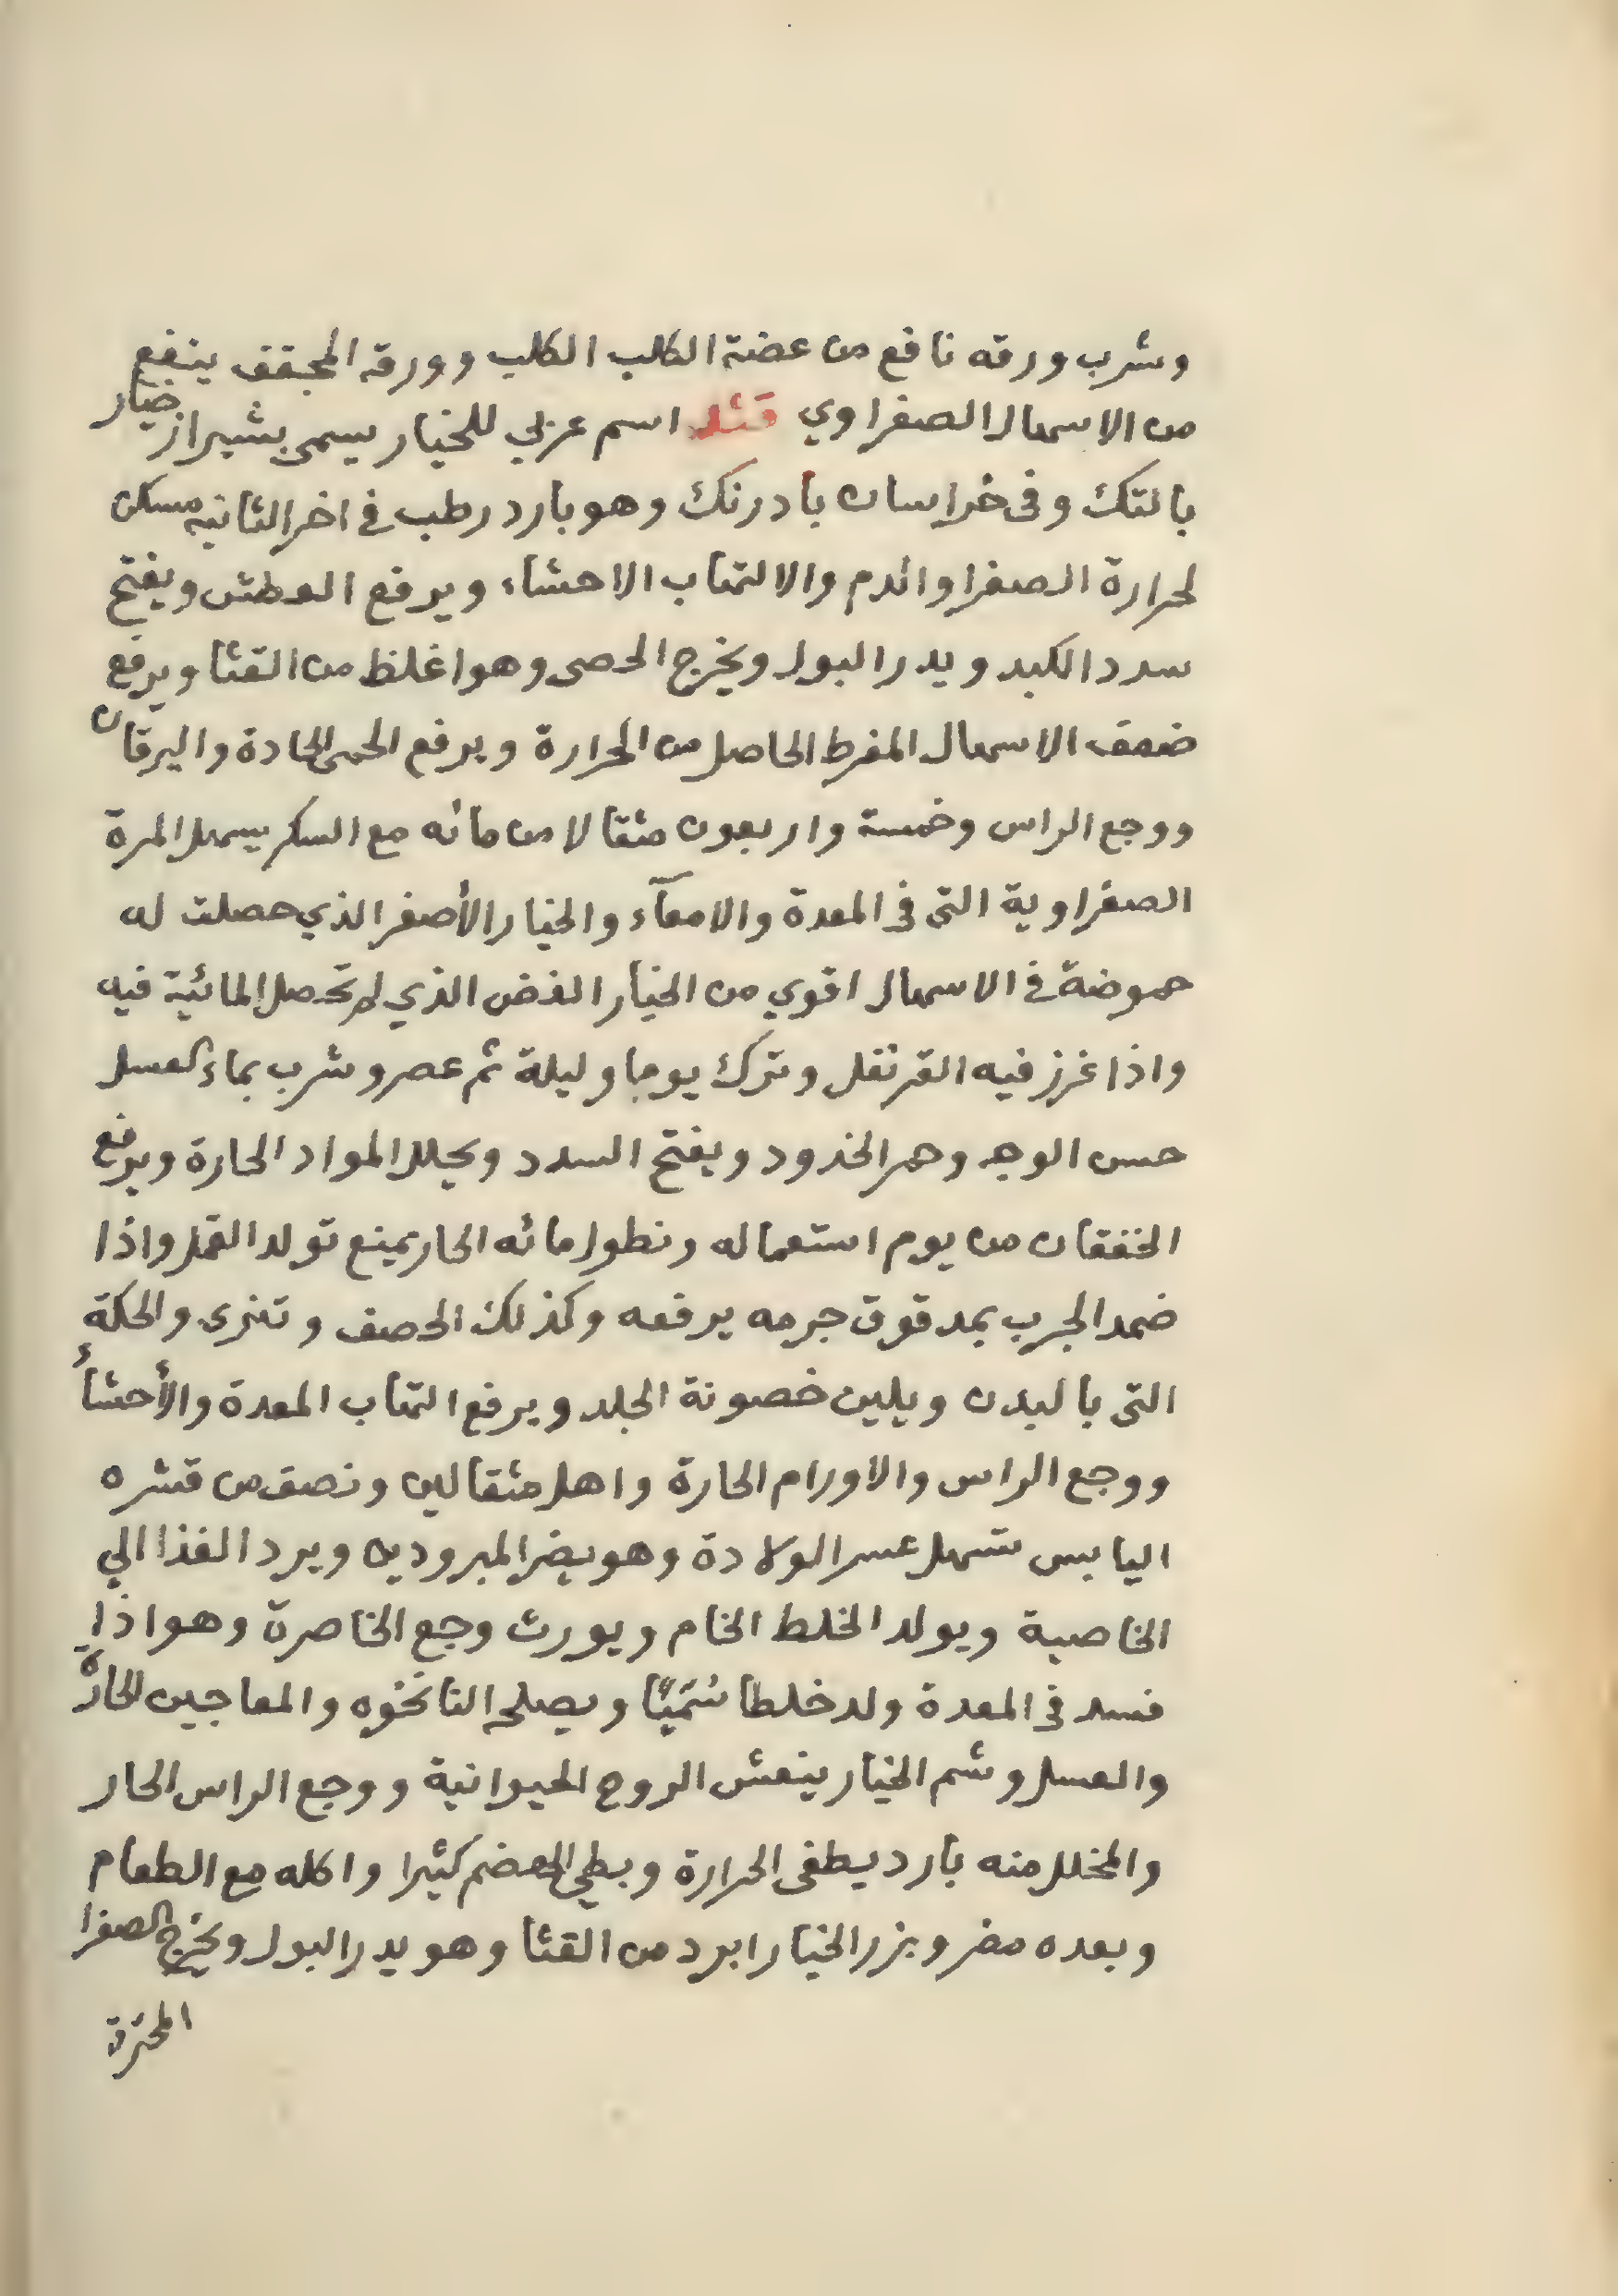 وشرب ورقه نافع من عضة الكلب الكلب وورقه المجفف ينفع
من الاسهال الصفراوي قثد اسم عربي للخيار يسمى بشيراز خيار
بالتك وفى خراسان بادرنك وهو بارد رطب في اخر الثانيه مسكن
لحرارة الصفرا والدم والالتهاب الاحشاء ويرفع العطش ويفتح
سدد الكبد ويدر البول ويخرج الحصى وهو اغلظ من القثا ويرفع
ضعف الاسهال المفرط الحاصل من الحرارة ويرفع الحمى الحادة واليرقان
ووجع الراس وخمسة واربعون مثقالا من مائه مع السكر يسهل المرة
الصفراوية التى فى المعدة والامعآء والخيار الأصفر الذي حصلت له
حموضة في الاسهال اقوي من الخيار الغض الذي لم تحصل المائية فيه
واذا غرز فيه القرنفل وترك يوما وليلة ثم عصر وشرب بماء العسل
حسن الوجه وحمر الخدود ويفتح السدد ويحلل المواد الحارة ويرفع
الخفقان من يوم استعماله ونطول مائه الحار يمنع تولد القمل واذا
ضمد الجرب بمدقوق جرمه يرفعه وكذلك الحصف و والحكة
التى بالبدن ويلين خصونة الجلد ويرفع التهاب المعدة والأحشأ
ووجع الراس والاورام الحارة واهل مثقالين ونصف من قشره
اليابس تسهل عسر الولادة وهو يضر المبرودين ويرد الغذا الي
الخاصية ويولد الخلط الخام ويورث وجع الخاصرة وهو اذا
فسد فى المعدة ولد خلطا سُمّيًّا ويصلحه النانخوه والمعاجين الحارّة
والعسل وشم الخيار ينعش الروح الحيوانية ووجع الراس الحار
والمخلل منه بارد يطفى الحرارة وبطي الهضم كثيرا واكله مع الطعام
وبعده مضر وبزر الخيار ابرد من القثا وهو يدر البول ويخرج الصفرا
المحترقة